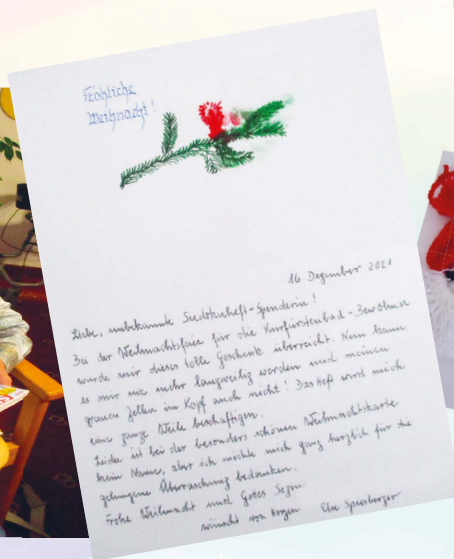 Fröhliche
Weihnacht!
16. Dezember 2021
Liebe, unbekannte Sudokuheft-Spenderin!
Bei der Weihnachtsfeier für die Kurfürstenbad-Bewohner
wurde mir dieses tolle Geschenk überreicht. Nun kann
es mir nie mehr langweilig werden und meinen
grauen Zellen im Kopf auch nicht! Das Heft wird mich
eine ganze Weile beschäftigen.
Leider ist bei der besonders schönen Weihnachtskarte
kein Name, aber ich möchte mich ganz herzlich für die
gelungene Überraschung bedanken.
Frohe Weihnacht und Gottes Segen
wünscht von Herzen Else